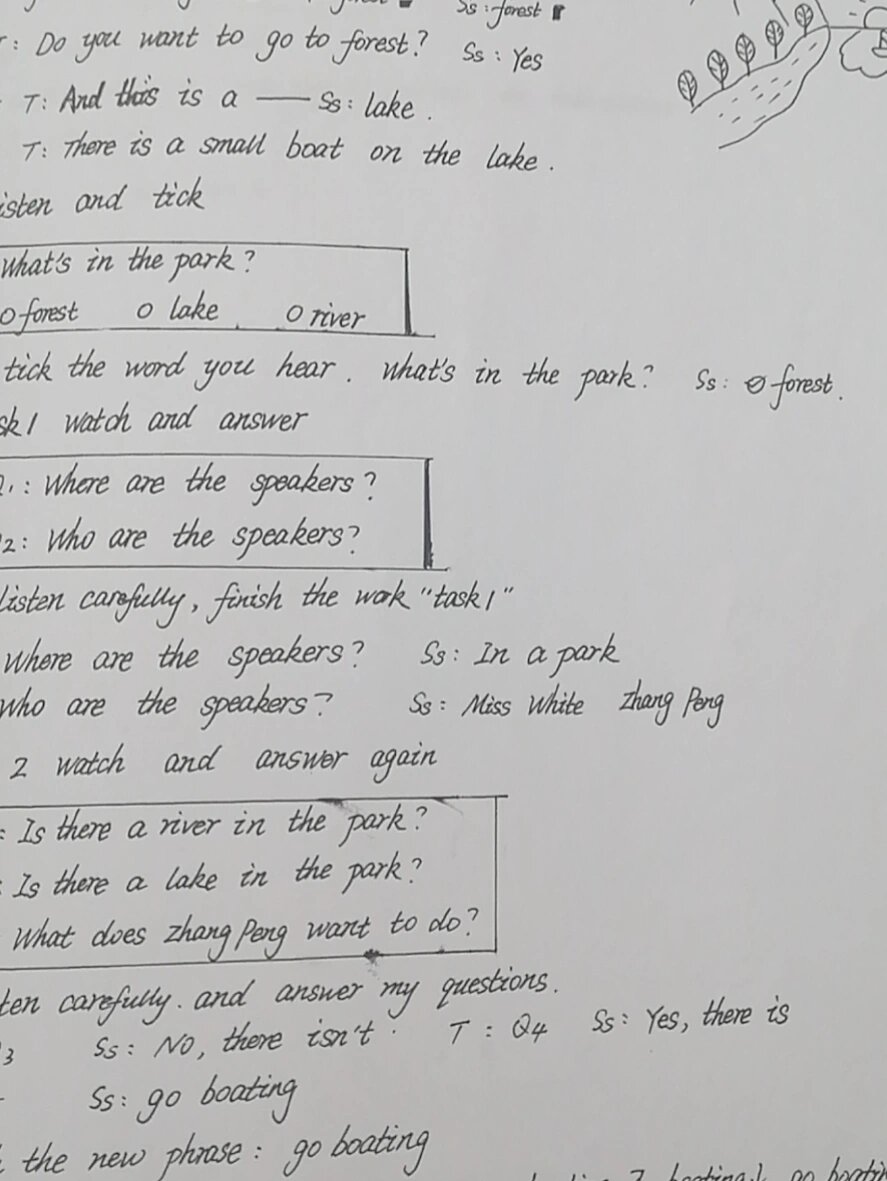 Ss: forest
: Do you want to go to forest? Ss: Yes
T: And this is a —— Ss: lake.
T: There is a small boat on the lake.
isten and tick
What's in the park?
O forest O lake O river
tick the word you hear. What's in the park? Ss: ∅ forest.
sk1 watch and answer
1: Where are the speakers?
2: Who are the speakers?
listen carefully, finish the work "task1"
Where are the speakers? Ss: In a park
Who are the speakers? Ss: Miss White Zhang Peng
2 watch and answer again
: Is there a river in the park?
: Is there a lake in the park?
What does Zhang Peng want to do?
ten carefully. and answer my questions.
3 Ss: No, there isn't. T: Q4 Ss: Yes, there is
Ss: go boating
the new phrase: go boating
boating go